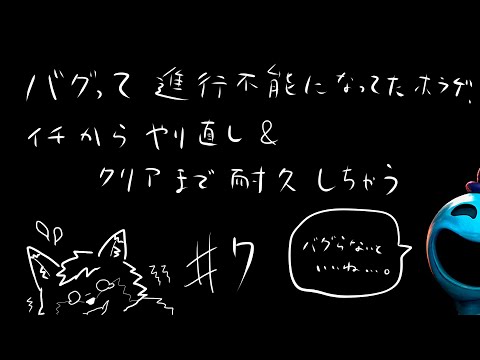 バグって進行不能になってたホラゲ、
イチからやり直し&
クリアまで耐久しちゃう
#7
バグらないと
いいね…。